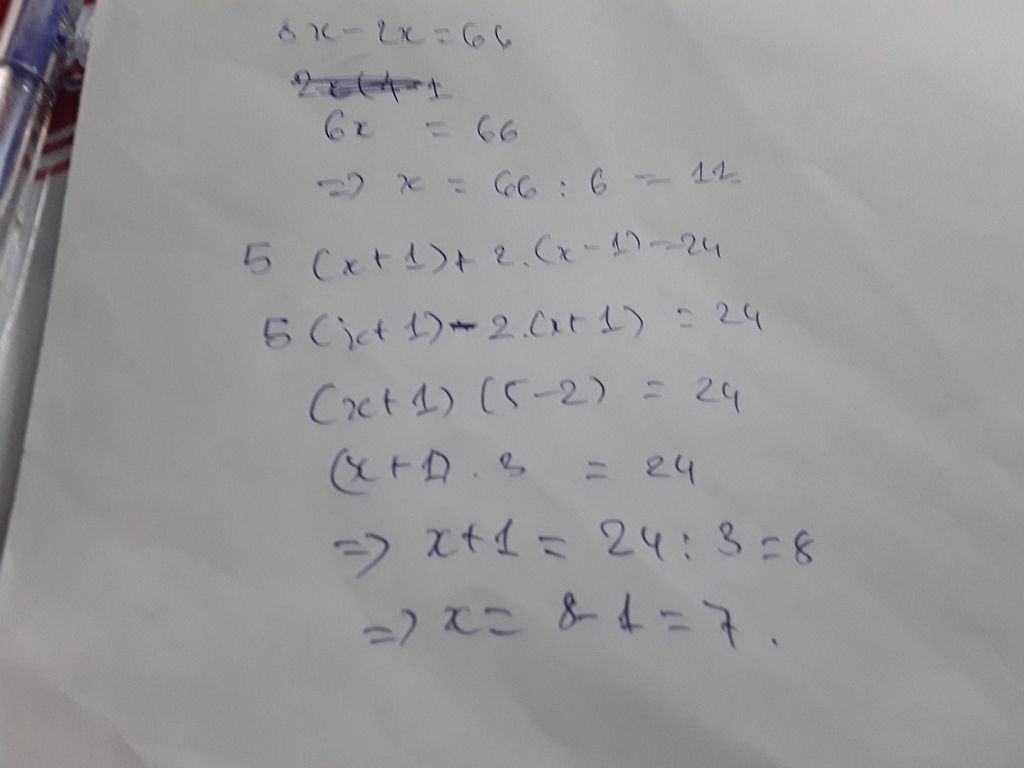 8x - 2x = 66
6x = 66
=> x = 66 : 6 = 11
5 (x + 1) + 2. (x - 1) = 24
5 (x + 1) - 2. (x + 1) = 24
(x + 1) (5 - 2) = 24
(x + 1) . 3 = 24
=> x + 1 = 24 : 3 = 8
=> x = 8 - 1 = 7 .